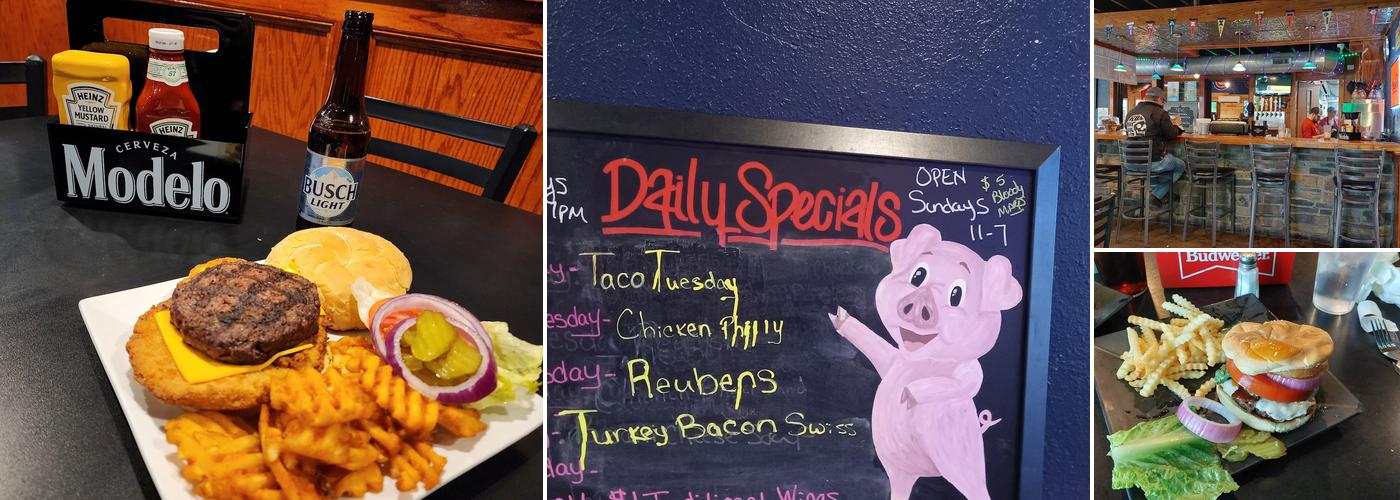 HEINZ
YELLOW
MUSTARD
57
HEINZ
CERVEZA
Modelo
BUSCH
LIGHT
Daily Specials
OPEN
Sundays
11-7
$5
Bloody
Marys
Taco Tuesday
esday- Chicken Philly
sday- Reubens
- Turkey Bacon Swiss
day-
$1 Traditional Wings
Budweiser